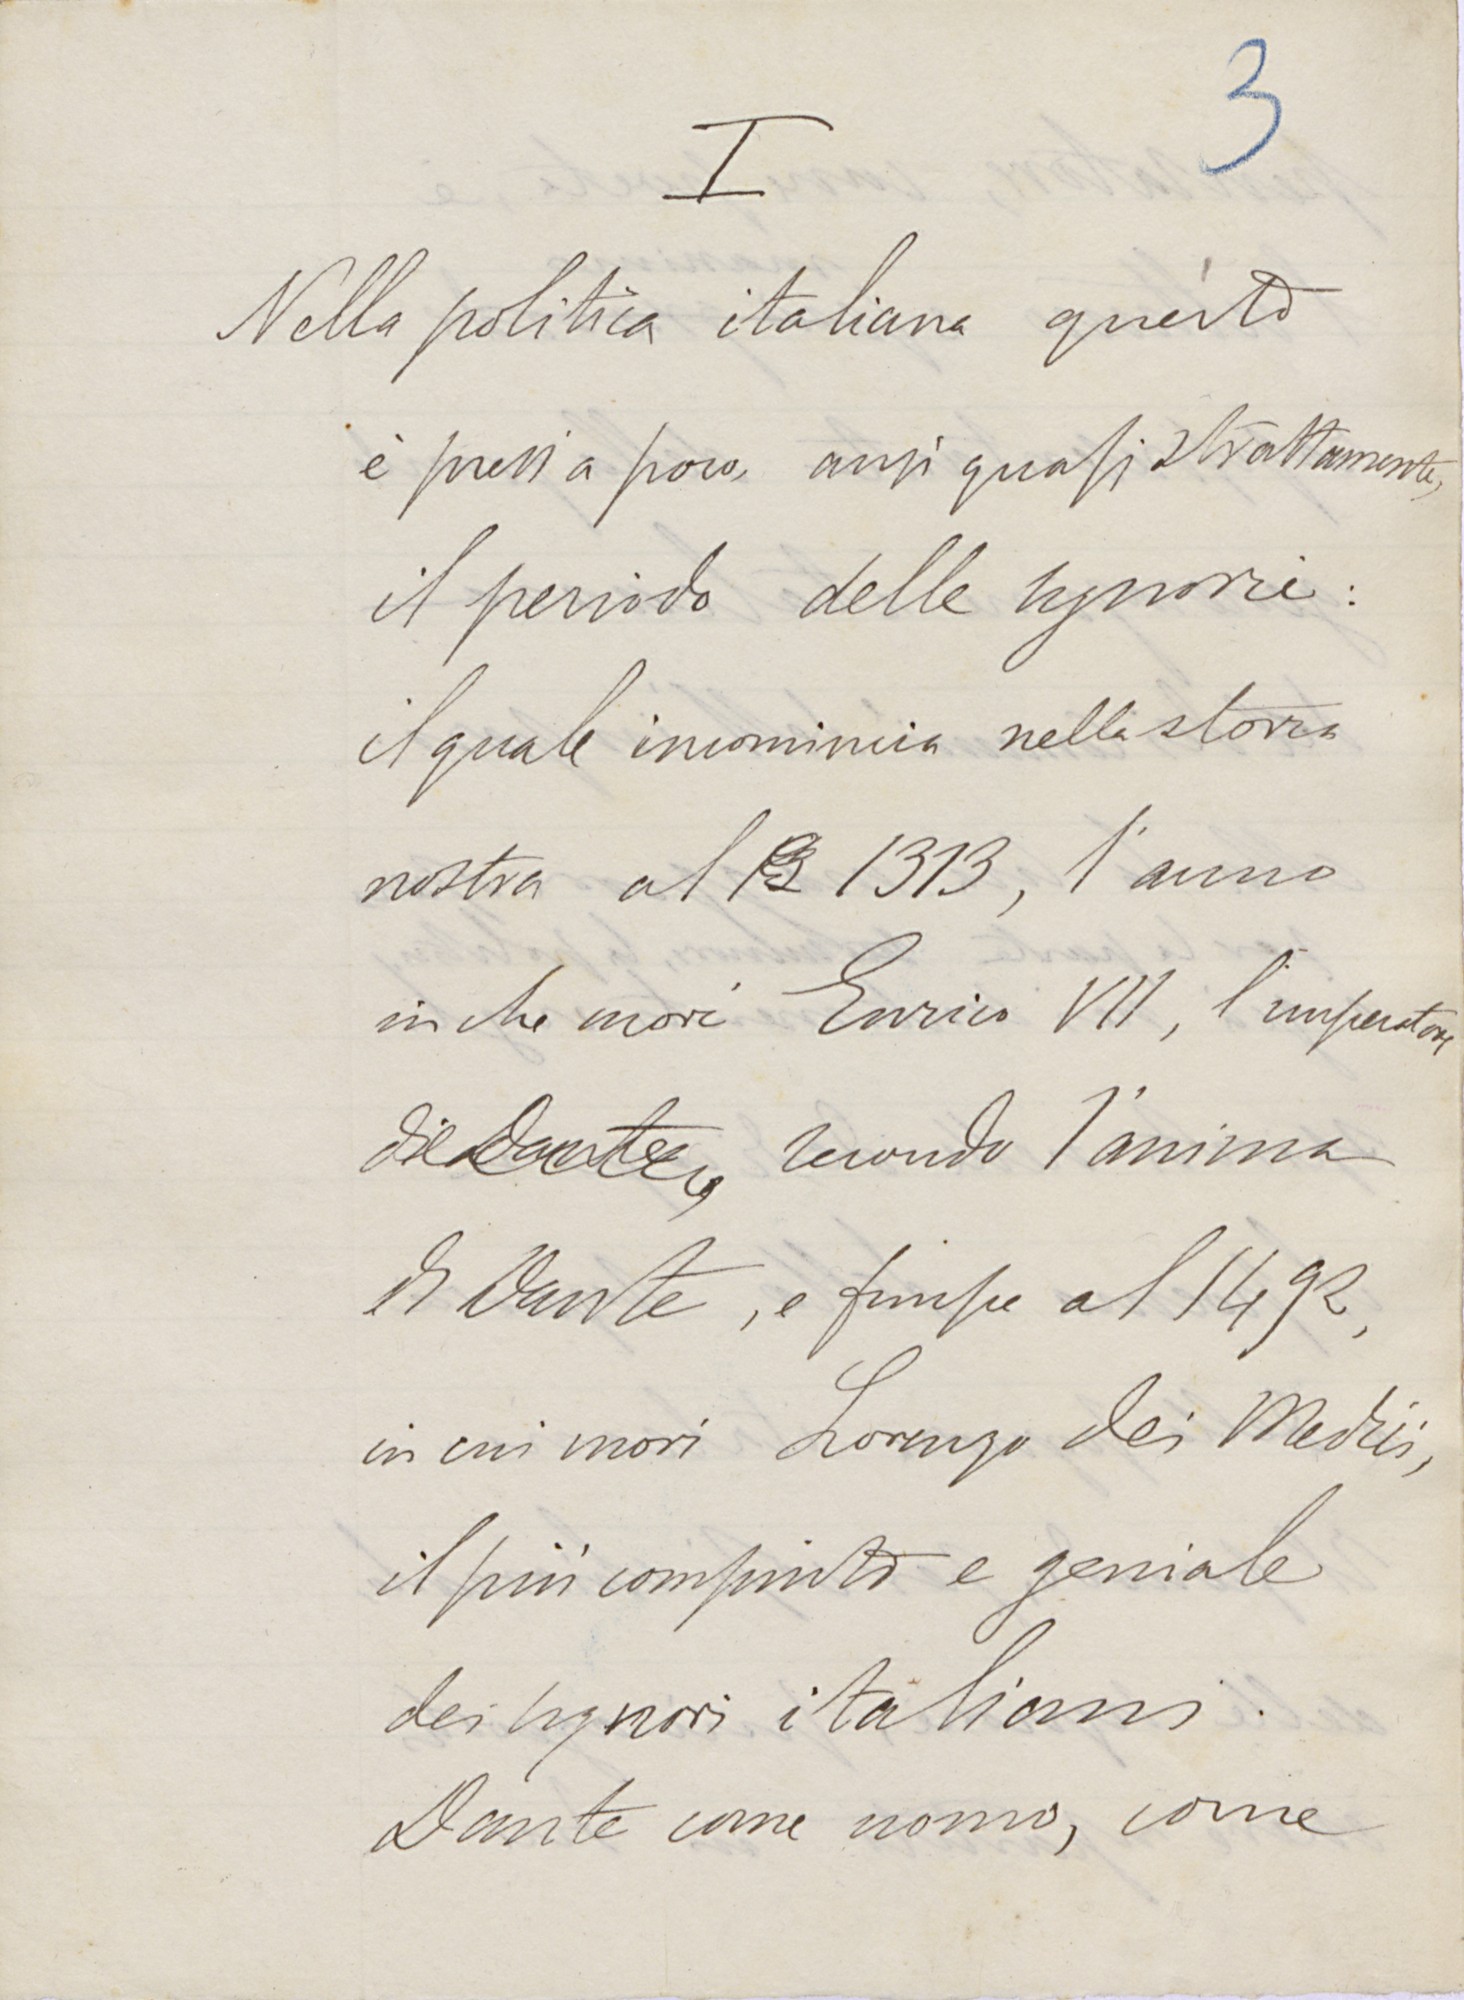 3
I
Nella politica italiana questo
è press a poco, anzi quasi strattamente,
il periodo delle signorie:
il quale incomincia nella storia
nostra al 1313, l'anno
in che morì Enrico VII, l'imperatore
di Dante, secondo l'anima
di Dante, e finisce al 1492,
in cui morì Lorenzo dei Medici,
il più compiuto e geniale
dei signori italiani.
Dante come uomo, come